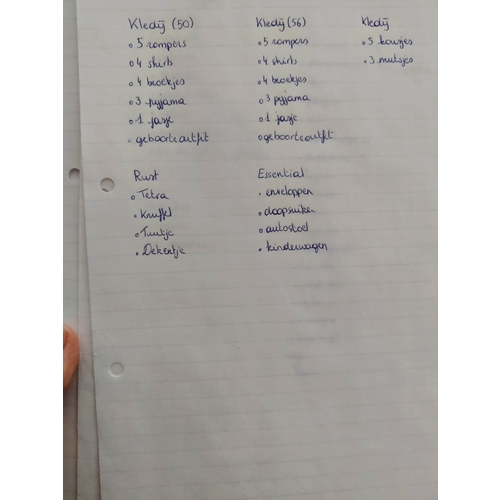 Kledij (50)
o 5 rompers
o 4 shirts
o 4 broekjes
o 3 pyjama
o 1 jasje
- geboorteoutfit
Kledij (56)
o 5 rompers
o 4 shirts
o 4 broekjes
o 3 pyjama
o 1 jasje
o geboorteoutfit
Kledij
o 5 kousjes
o 3 mutsjes
Rust
o Tetra
• Knuffel
o Tuutje
• Dekentje
Essential
• enveloppen
• doopsuiker
o autostoel
• kinderwagen